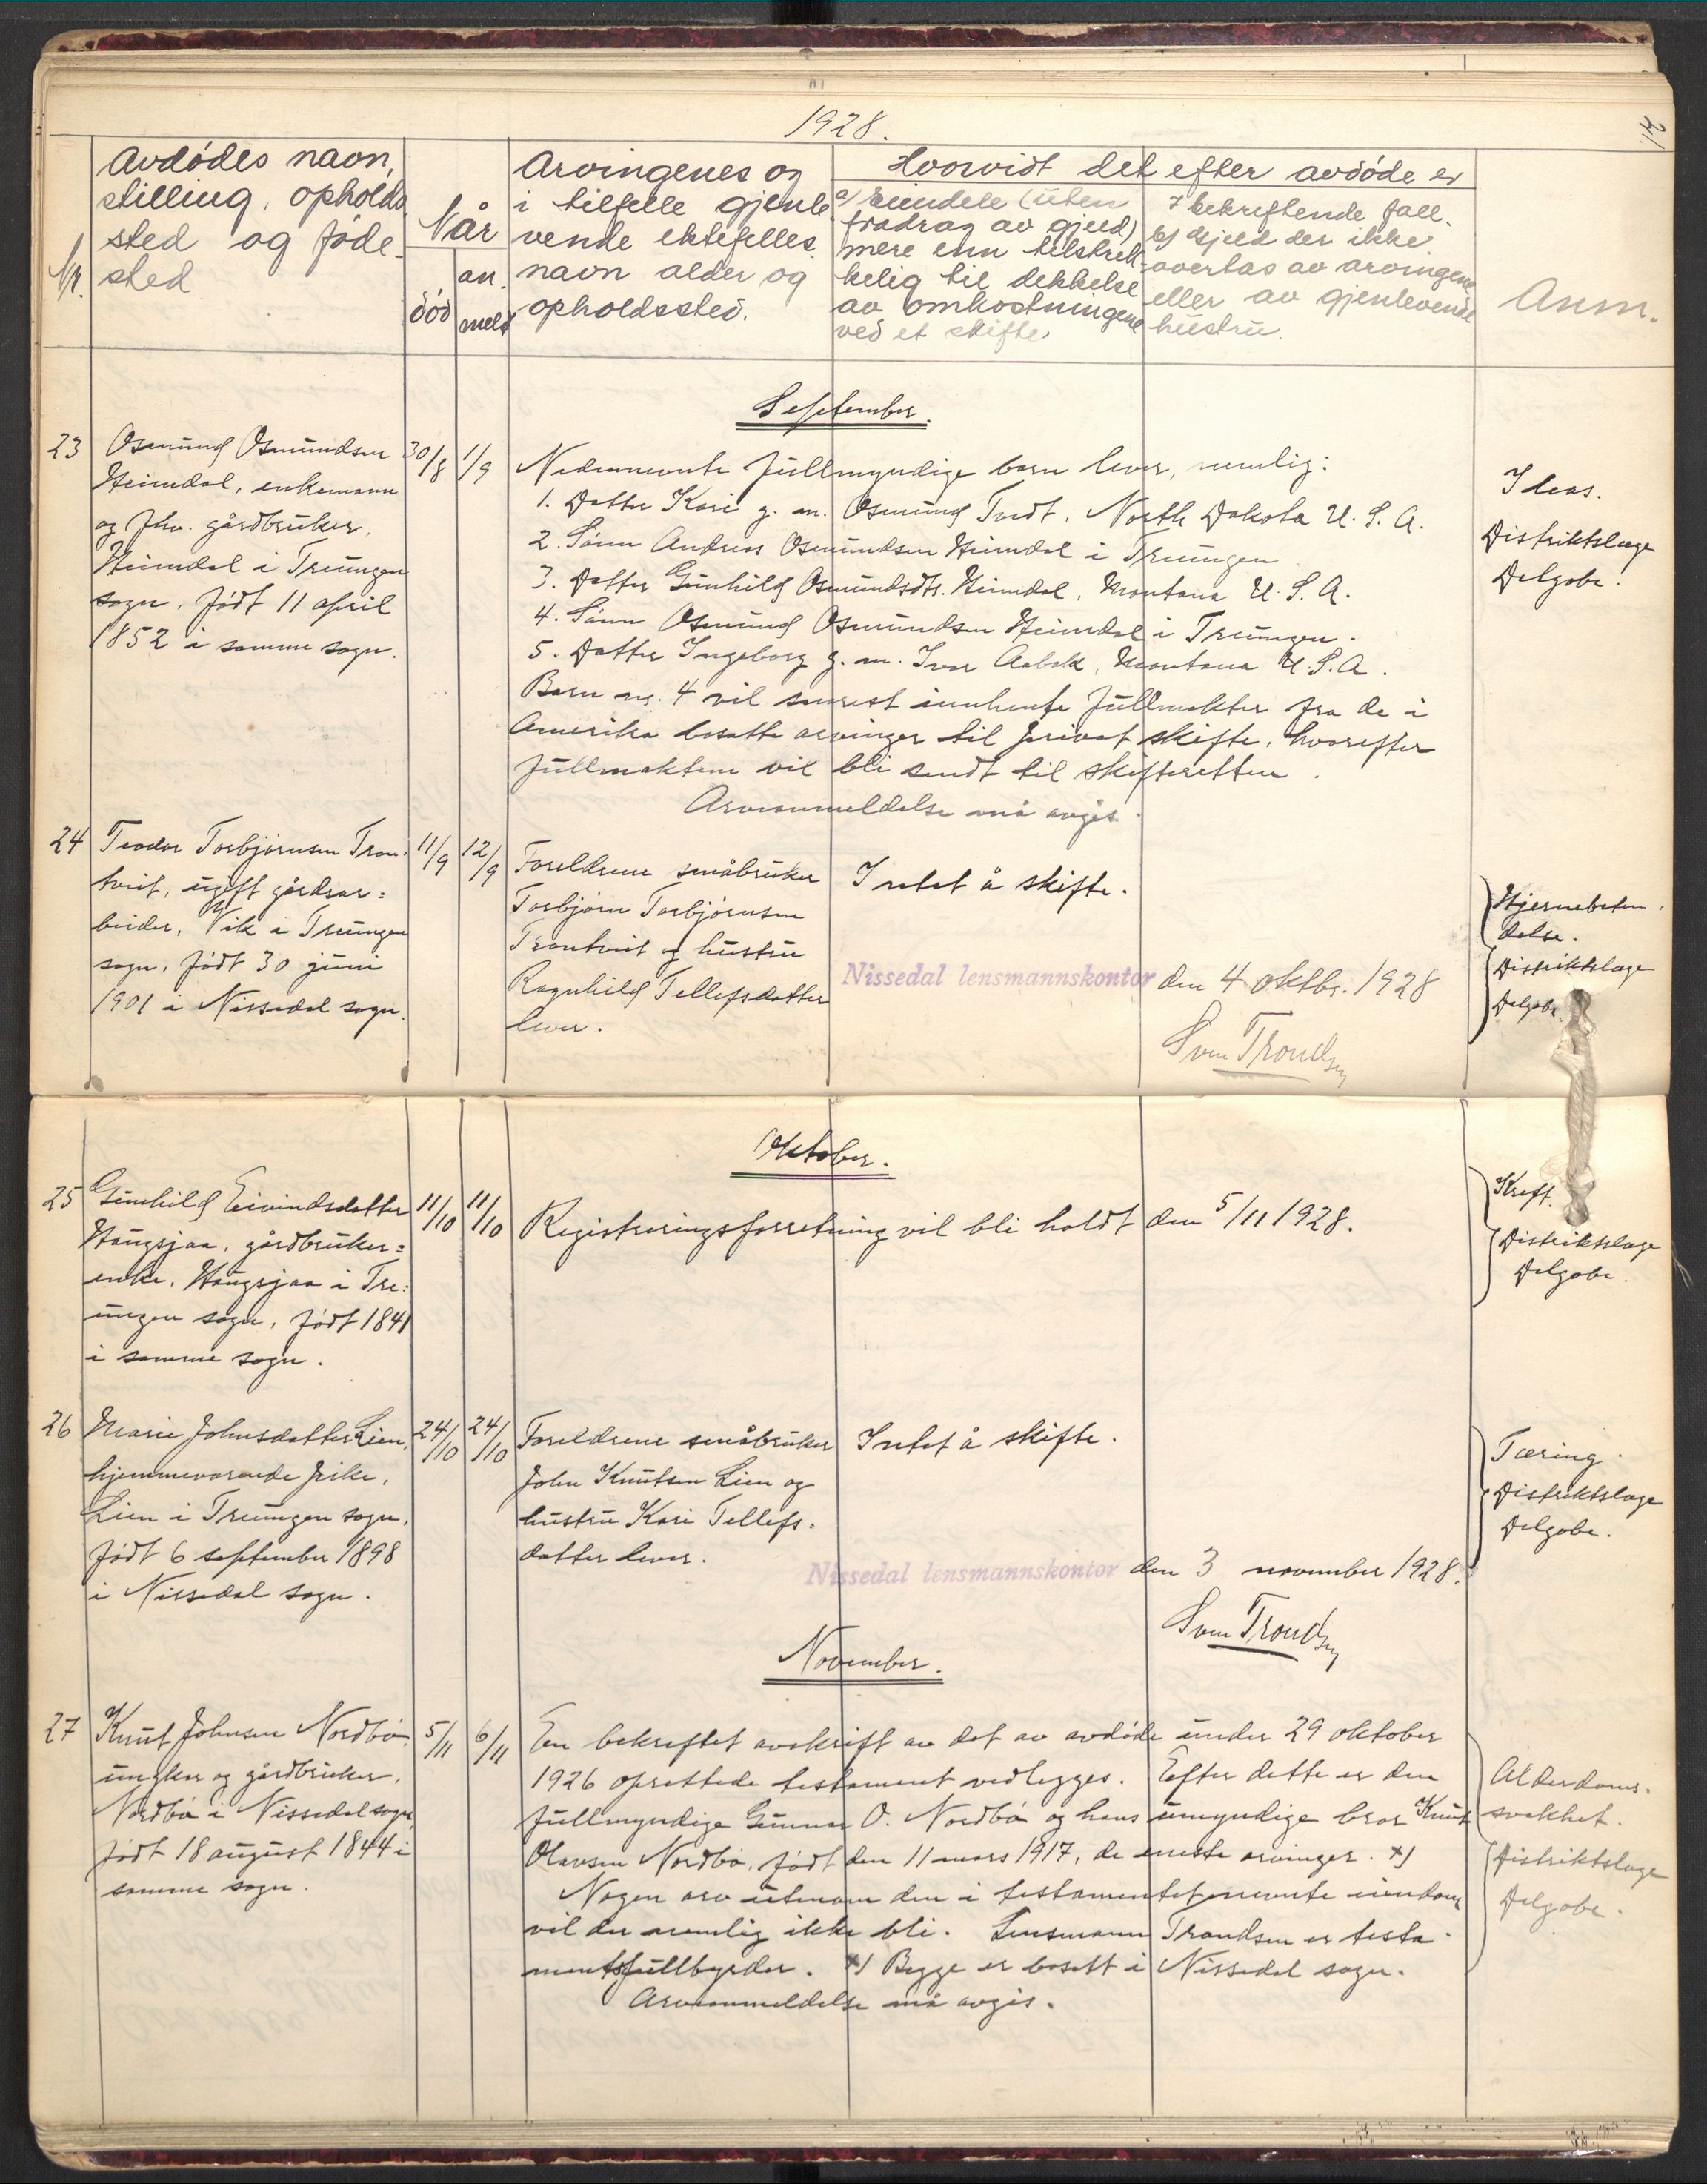 1928.
21
Nr.
Avdødes navn,
stilling, opholds
sted og føde-
sted
Når
død
an.
meldt
Arvingenes og
i tilfelle gjenle-
vende ektefelles
navn alder og
opholdssted.
Hvorvidt det efter avdøde er
a) Eiendele (uten
fradrag av gjeld)
mere enn tilstrek-
kelig til dekkelse
av omkostningene
ved et skifte
I bekreftende fall.
b) Gjeld der ikke
overtas av arvingene
eller av gjenlevende
hustru.
Anm.
September.
23
Osmund Osmundsen
Heimdal, enkemann
og fhv. gårdbruker,
Heimdal i Treungen
sogn. Født 11 april
1852 i samme sogn.
30/8
1/9
Nedennevnte fullmyndige barn lever, nemlig:
1. Datter Kari g. m. Osmund Tvedt, North Dakota U. S. A.
2. Sønn Andres Osmundsen Heimdal i Treungen
3. Datter Gunhild Osmundsdtr. Heimdal, Montana U. S. A.
4. Sønn Osmund Osmundsen Heimdal i Treungen.
5. Datter Ingeborg g. m. Ivar Aabak, Montana U. S. A.
Barn nr. 4 vil snarest innhente fullmakter fra de i
Amerika bosatte arvinger til privat skifte, hvorefter
fullmaktene vil bli sendt til skifteretten.
Arveanmeldelse må avgis.
Distriktslæge
Delgobe.
24
Teodor Torbjørnsen Tron-
tveit, ugift gårdsar=
beider, Vik i Treungen
sogn, født 30 juni
1901 i Nissedal sogn.
11/9
12/9
Foreldrene småbruker
Torbjørn Torbjørnsen
Trontveit og hustru
Ragnhild Tellefsdatter
lever.
Intet å skifte.
Hjernebeten-
delse.
Distriktslæge
Delgobe.
Nissedal lensmannskontor den 4 oktbr. 1928
Sven Trondsen
Oktober.
25
Gunhild Eivindsdatter
Haugsjaa, gårdbruker=
enke, Haugsjaa i Tre=
ungen sogn, født 1841
i samme sogn.
11/10
11/10
Registreringsforretning vil bli holdt den 5/11 1928.
Kreft.
Distriktslæge
Delgobe.
26
Marie Johnsdatter Lien,
hjemmeværende pike,
Lien i Treungen sogn,
født 6 september 1898
i Nissedal sogn.
24/10
24/10
Foreldrene småbruker
John Knutsen Lien og
hustru Kari Tellefs-
datter lever.
Intet å skifte.
Tæring.
Distriktslæge
Delgobe.
Nissedal lensmannskontor den 3 november 1928.
Sven Trondsen
November.
27
Knut Johnsen Nordbø,
ungkar og gårdbruker,
Nordbø i Nissedal sogn,
født 18 august 1844 i
samme sogn.
5/11
6/11
En bekreftet avskrift av det av avdøde under 29 oktober
1926 oprettede testament vedlegges. Efter dette er den
fullmyndige Gunnar O. Nordbø og hans umyndige bror Knut
Olavsen Nordbø, født den 11 mars 1917, de eneste arvinger. x)
Nogen arv utenom den i testamentet nevnte eiendom
vil der nemlig ikke bli. Lensmann Trondsen er testa-
mentsfullbyrder. x) Begge er bosatt i Nissedal sogn.
Arveanmeldelse må avgis.
Alderdoms-
svekket.
Distriktslæge
Delgobe.